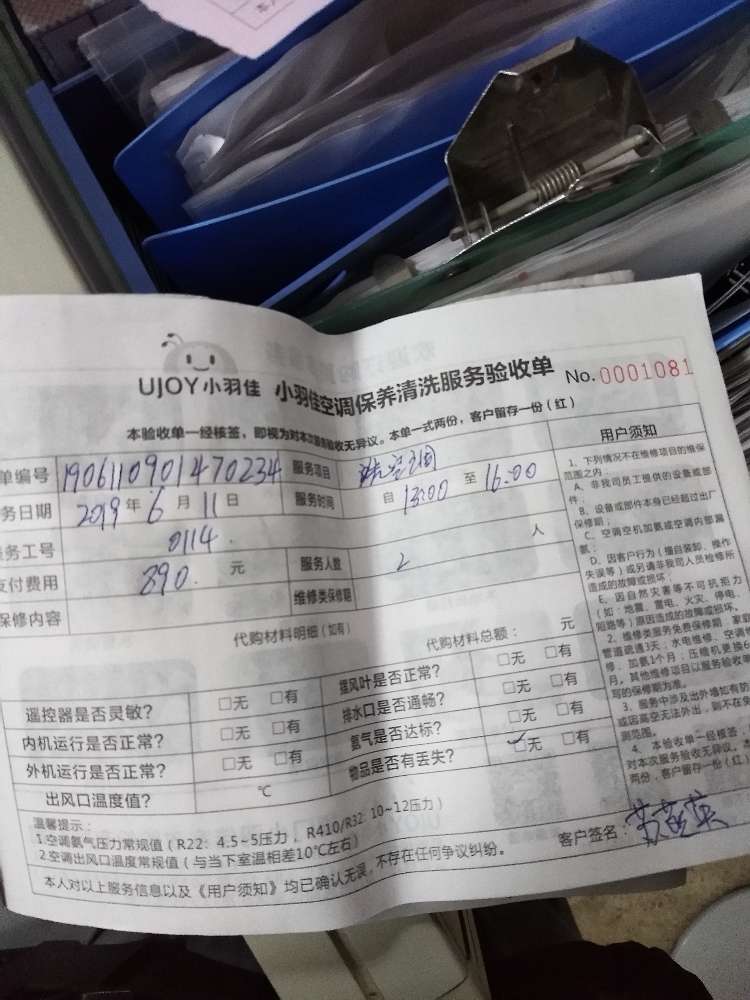 UJOY小羽佳 小羽佳空调保养清洗服务验收单 No.0001081
本验收单一经核签，即视为对本次服务验收无异议。本单一式两份，客户留存一份（红）
单编号 1906110901470234 服务项目 洗空调
务日期 2019年6月11日 服务时间 自 13:00 至 16:00
务工号 0114 服务人数 2 人
支付费用 890. 元 维修类保修期
保修内容
代购材料明细（如有） 代购材料总额： 元
遥控器是否灵敏？ □无 □有 摆风叶是否正常？ □无 □有
内机运行是否正常？ □无 □有 排水口是否通畅？ □无 □有
外机运行是否正常？ □无 □有 氨气是否达标？ □无 □有
出风口温度值？ ℃ 物品是否有丢失？ □无 □有
温馨提示：
1.空调氨气压力常规值（R22：4.5~5压力，R410/R32：10~12压力）
2.空调出风口温度常规值（与当下室温相差10℃左右）
客户签名：
本人对以上服务信息以及《用户须知》均已确认无误，不存在任何争议纠纷。
用户须知
1、下列情况不在维修项目的维保
范围之内：
A、非我司员工提供的设备或部
件；
B、设备或部件本身已经超过出厂
保修期；
C、空调空机加氨或空调内部漏
氨；
D、因客户行为（擅自装卸、操作
失误等）或另请非我司人员检修所
造成的故障或损坏；
E、因自然灾害等不可抗拒力
（如：地震、雷电、火灾、停电、
短路等）原因造成的故障或损坏。
2、维修类服务免费保修期：家庭
管道疏通3天；水电维修、空调
修、加氨1个月；压缩机更换6
月，其他维修项目以服务验收单
写的保修期为准。
3、服务中涉及出外墙如有防
或因高空无法外出，则不在免
测范围。
4、本验收单一经核签，
对本次服务验收无异议。本
两份，客户留存一份（红）